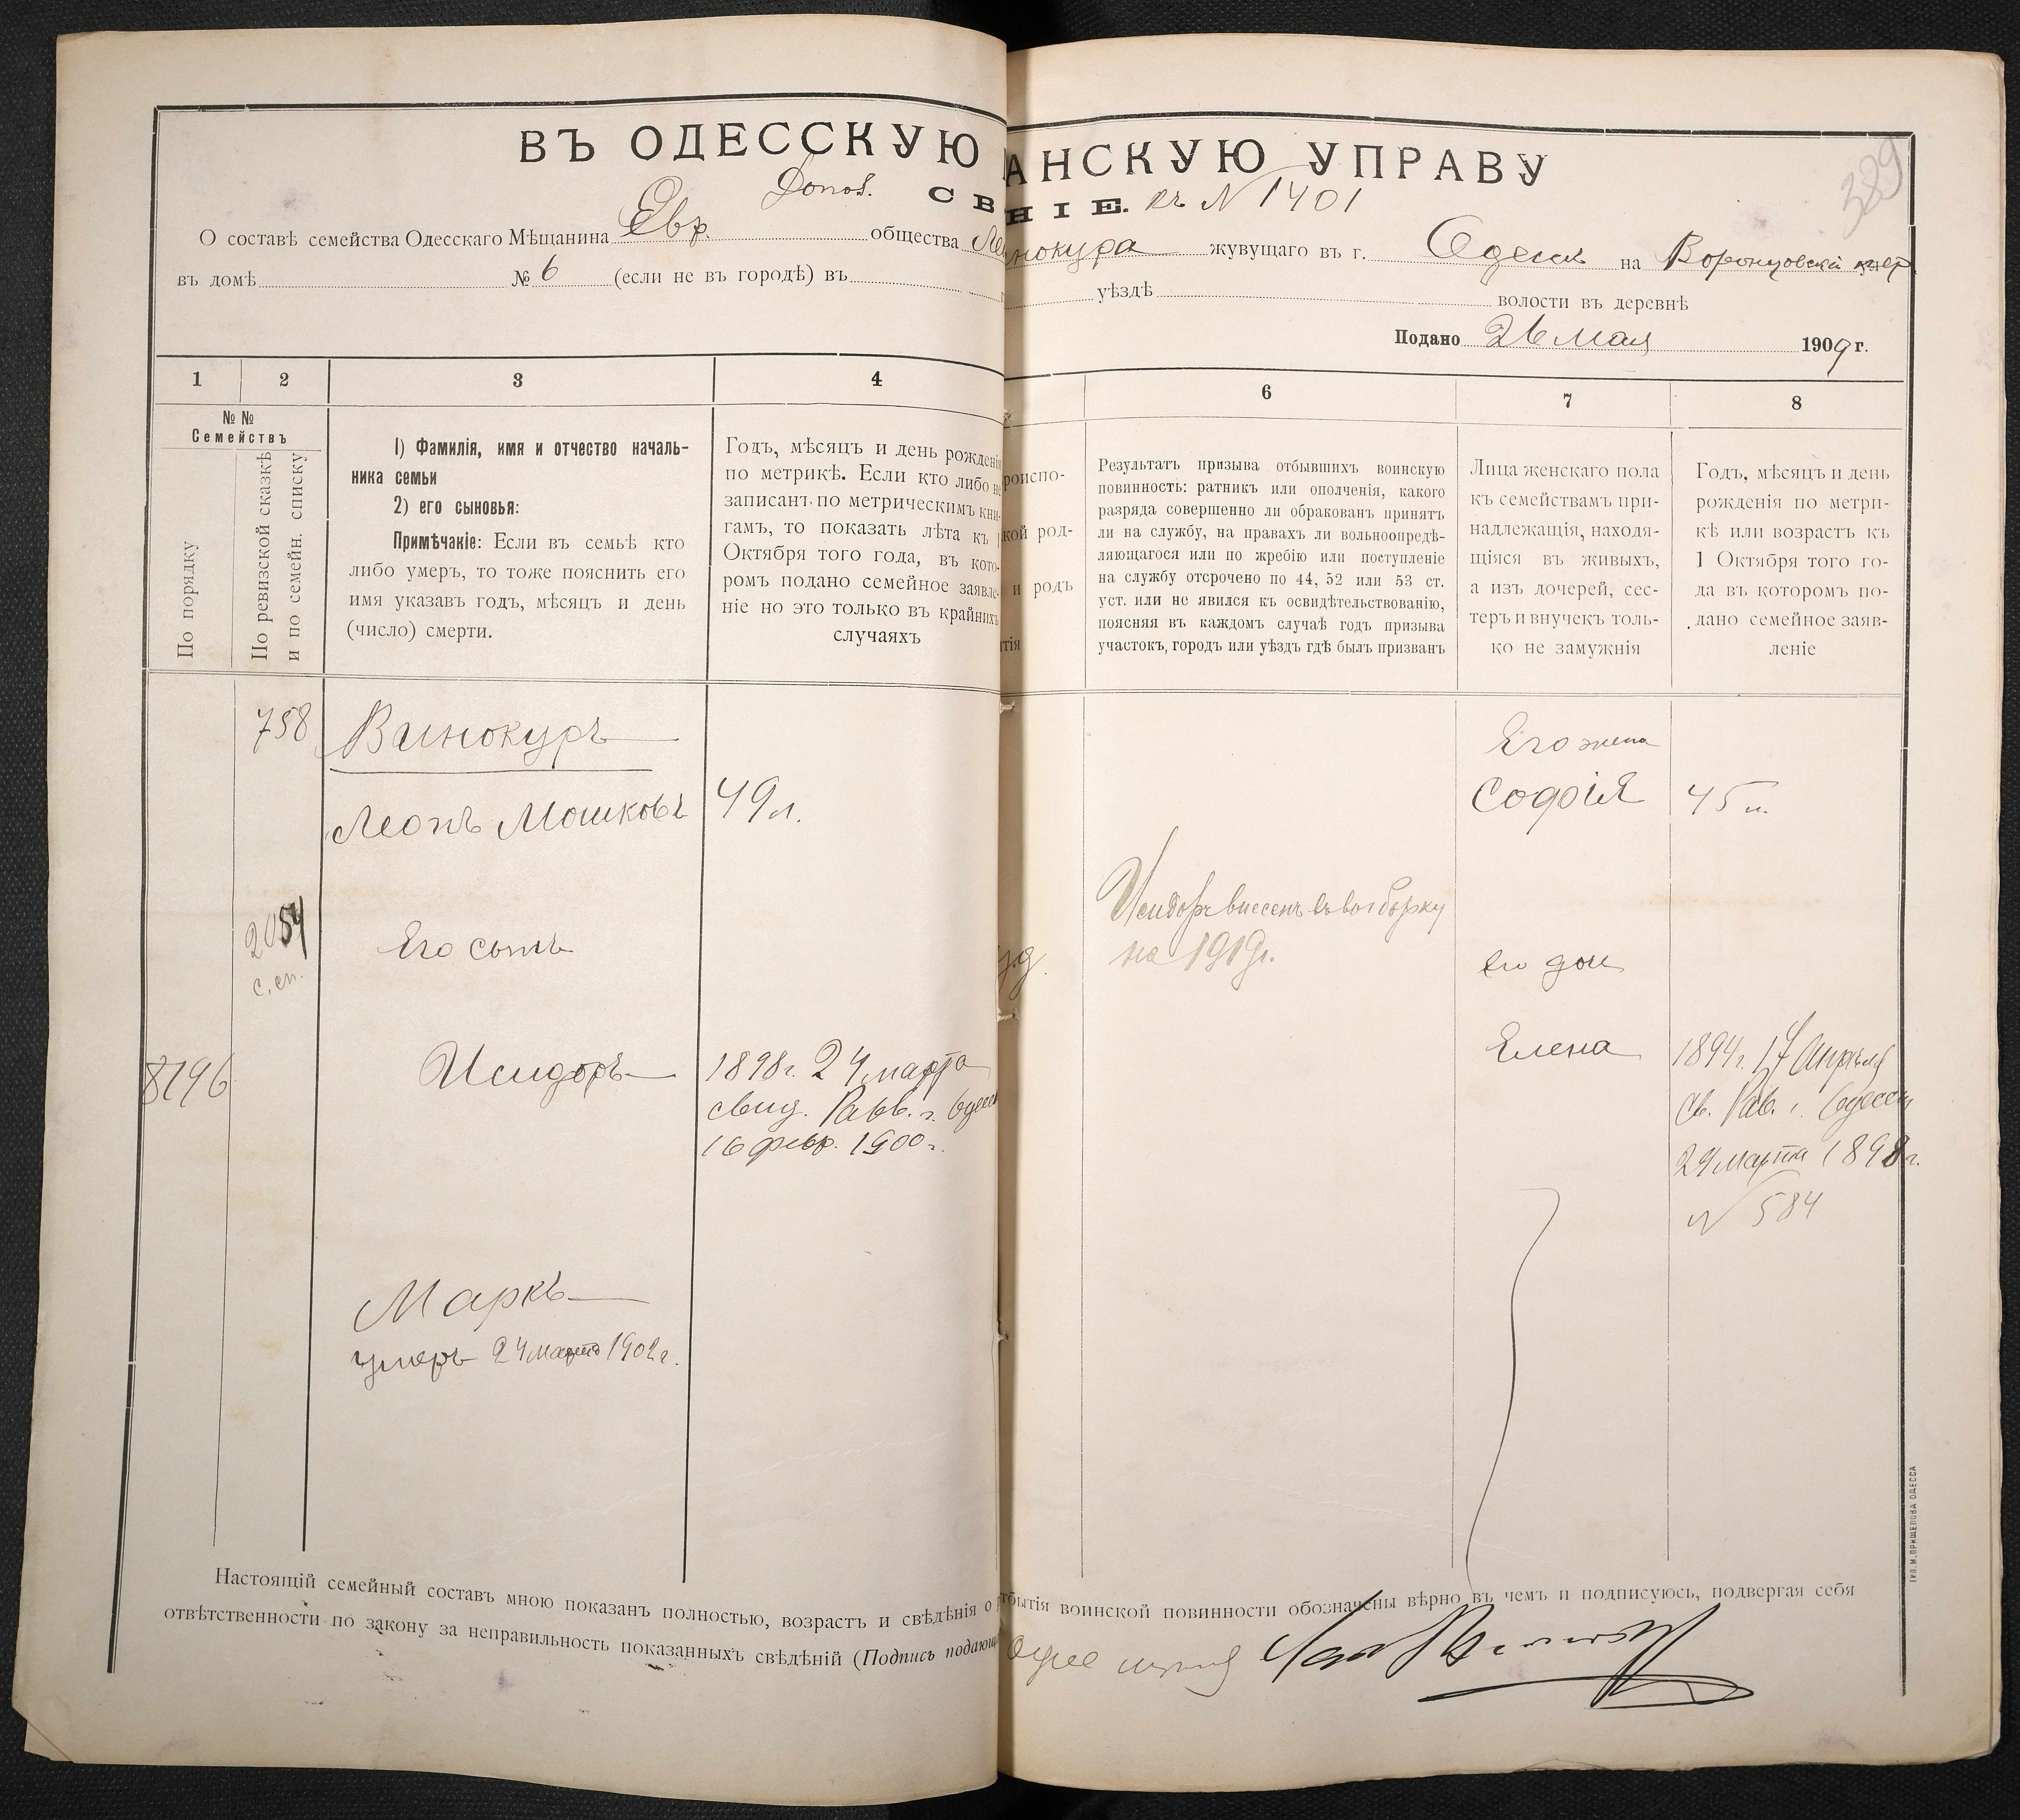 ВЪ ОДЕССКУЮ АНСКУЮ УПРАВУ
329
Допол. С В НІЕ. къ N 1401
О составѣ семейства Одесскаго Мѣщанина Евр. общества Ле нокура жувущаго въ г. Одессѣ на Воронцовскій пер
въ домѣ № 6 (если не въ городѣ) въ уѣздѣ волости въ деревнѣ
Подано 26 Мая 1909 г.
1 2 3 4 6 7 8
№ №
Семействъ
По порядку
По ревизской сказкѣ
и по семейн. списку
1) Фамилія, имя и отчество началь-
ника семьи
2) его сыновья:
Примѣчакіе: Если въ семьѣ кто
либо умеръ, то тоже пояснить его
имя указавъ годъ, мѣсяцъ и день
(число) смерти.
Годъ, мѣсяцъ и день рожденія
по метрикѣ. Если кто либо не
записанъ по метрическимъ кни-
гамъ, то показать лѣта къ 1
Октября того года, въ кото-
ромъ подано семейное заявле-
ніе но это только въ крайнихъ
случаяхъ
роиспо-
кой род-
и родъ
тія
Результатъ призыва отбывшихъ воинскую
повинность: ратникъ или ополченія, какого
разряда совершенно ли обракованъ принятъ
ли на службу, на правахъ ли вольноопредѣ-
ляющагося или по жребію или поступленіе
на службу отсрочено по 44, 52 или 53 ст.
уст. или не явился къ освидѣтельствованію,
поясняя въ каждомъ случаѣ годъ призыва
участокъ, городъ или уѣздъ гдѣ былъ призванъ
Лица женскаго пола
къ семействамъ при-
надлежащія, находя-
щіяся въ живыхъ,
а изъ дочерей, сес-
теръ и внучекъ толь-
ко не замужнія
Годъ, мѣсяцъ и день
рожденія по метри-
кѣ или возрастъ къ
1 Октября того го-
да въ котором по-
дано семейное заяв-
леніе
758 Винокуръ
Его жена
Леонъ Мошковъ 49 л.
Софія 45 л.
2054
с. сп.
Его сынъ
Исидоръ внесенъ въ
на 1919 г.
его доч
8196 Исидоръ 1898 г. 24 марта
свид. Равв. г. Одессы
16 февр. 1900 г.
Елена 1894 г. 17 Апрѣля
св. Рав. г. Одессы
29 Марта 1898 г.
N 584
Маркъ
умеръ 24 марта 1902 г.
Настоящій семейный составъ мною показанъ полностью, возрастъ и свѣдѣнія о тбытія воинской повинности обозначены вѣрно въ чемъ и подписуюсь, подвергая себя
отвѣтственности по закону за неправильность показанныхъ свѣдѣній (Подпись подающ
ТИП. М. ПРИЩЕПОВА ОДЕССА